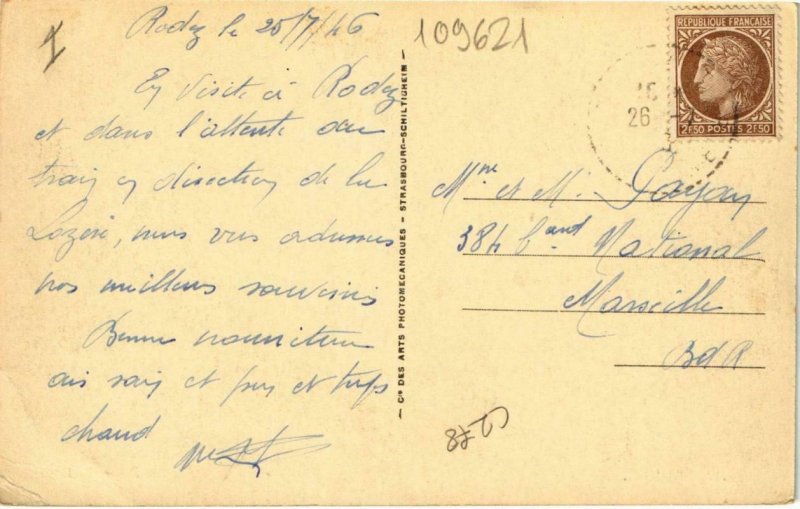 1
Rodez le 25/7/46
109621
En visite à Rodez
et dans l'attente du
train en direction de la
Lozère, nous vous adressons
nos meilleurs souvenirs
Bonne nourriture
air sain et pur et temps
chaud
RÉPUBLIQUE FRANÇAISE
2F50 POSTES 2F50
26
Mme et M. Payan
384 band National
Marseille
BdR
Cie DES ARTS PHOTOMECANIQUES - STRASBOURG-SCHILTIGHEIM